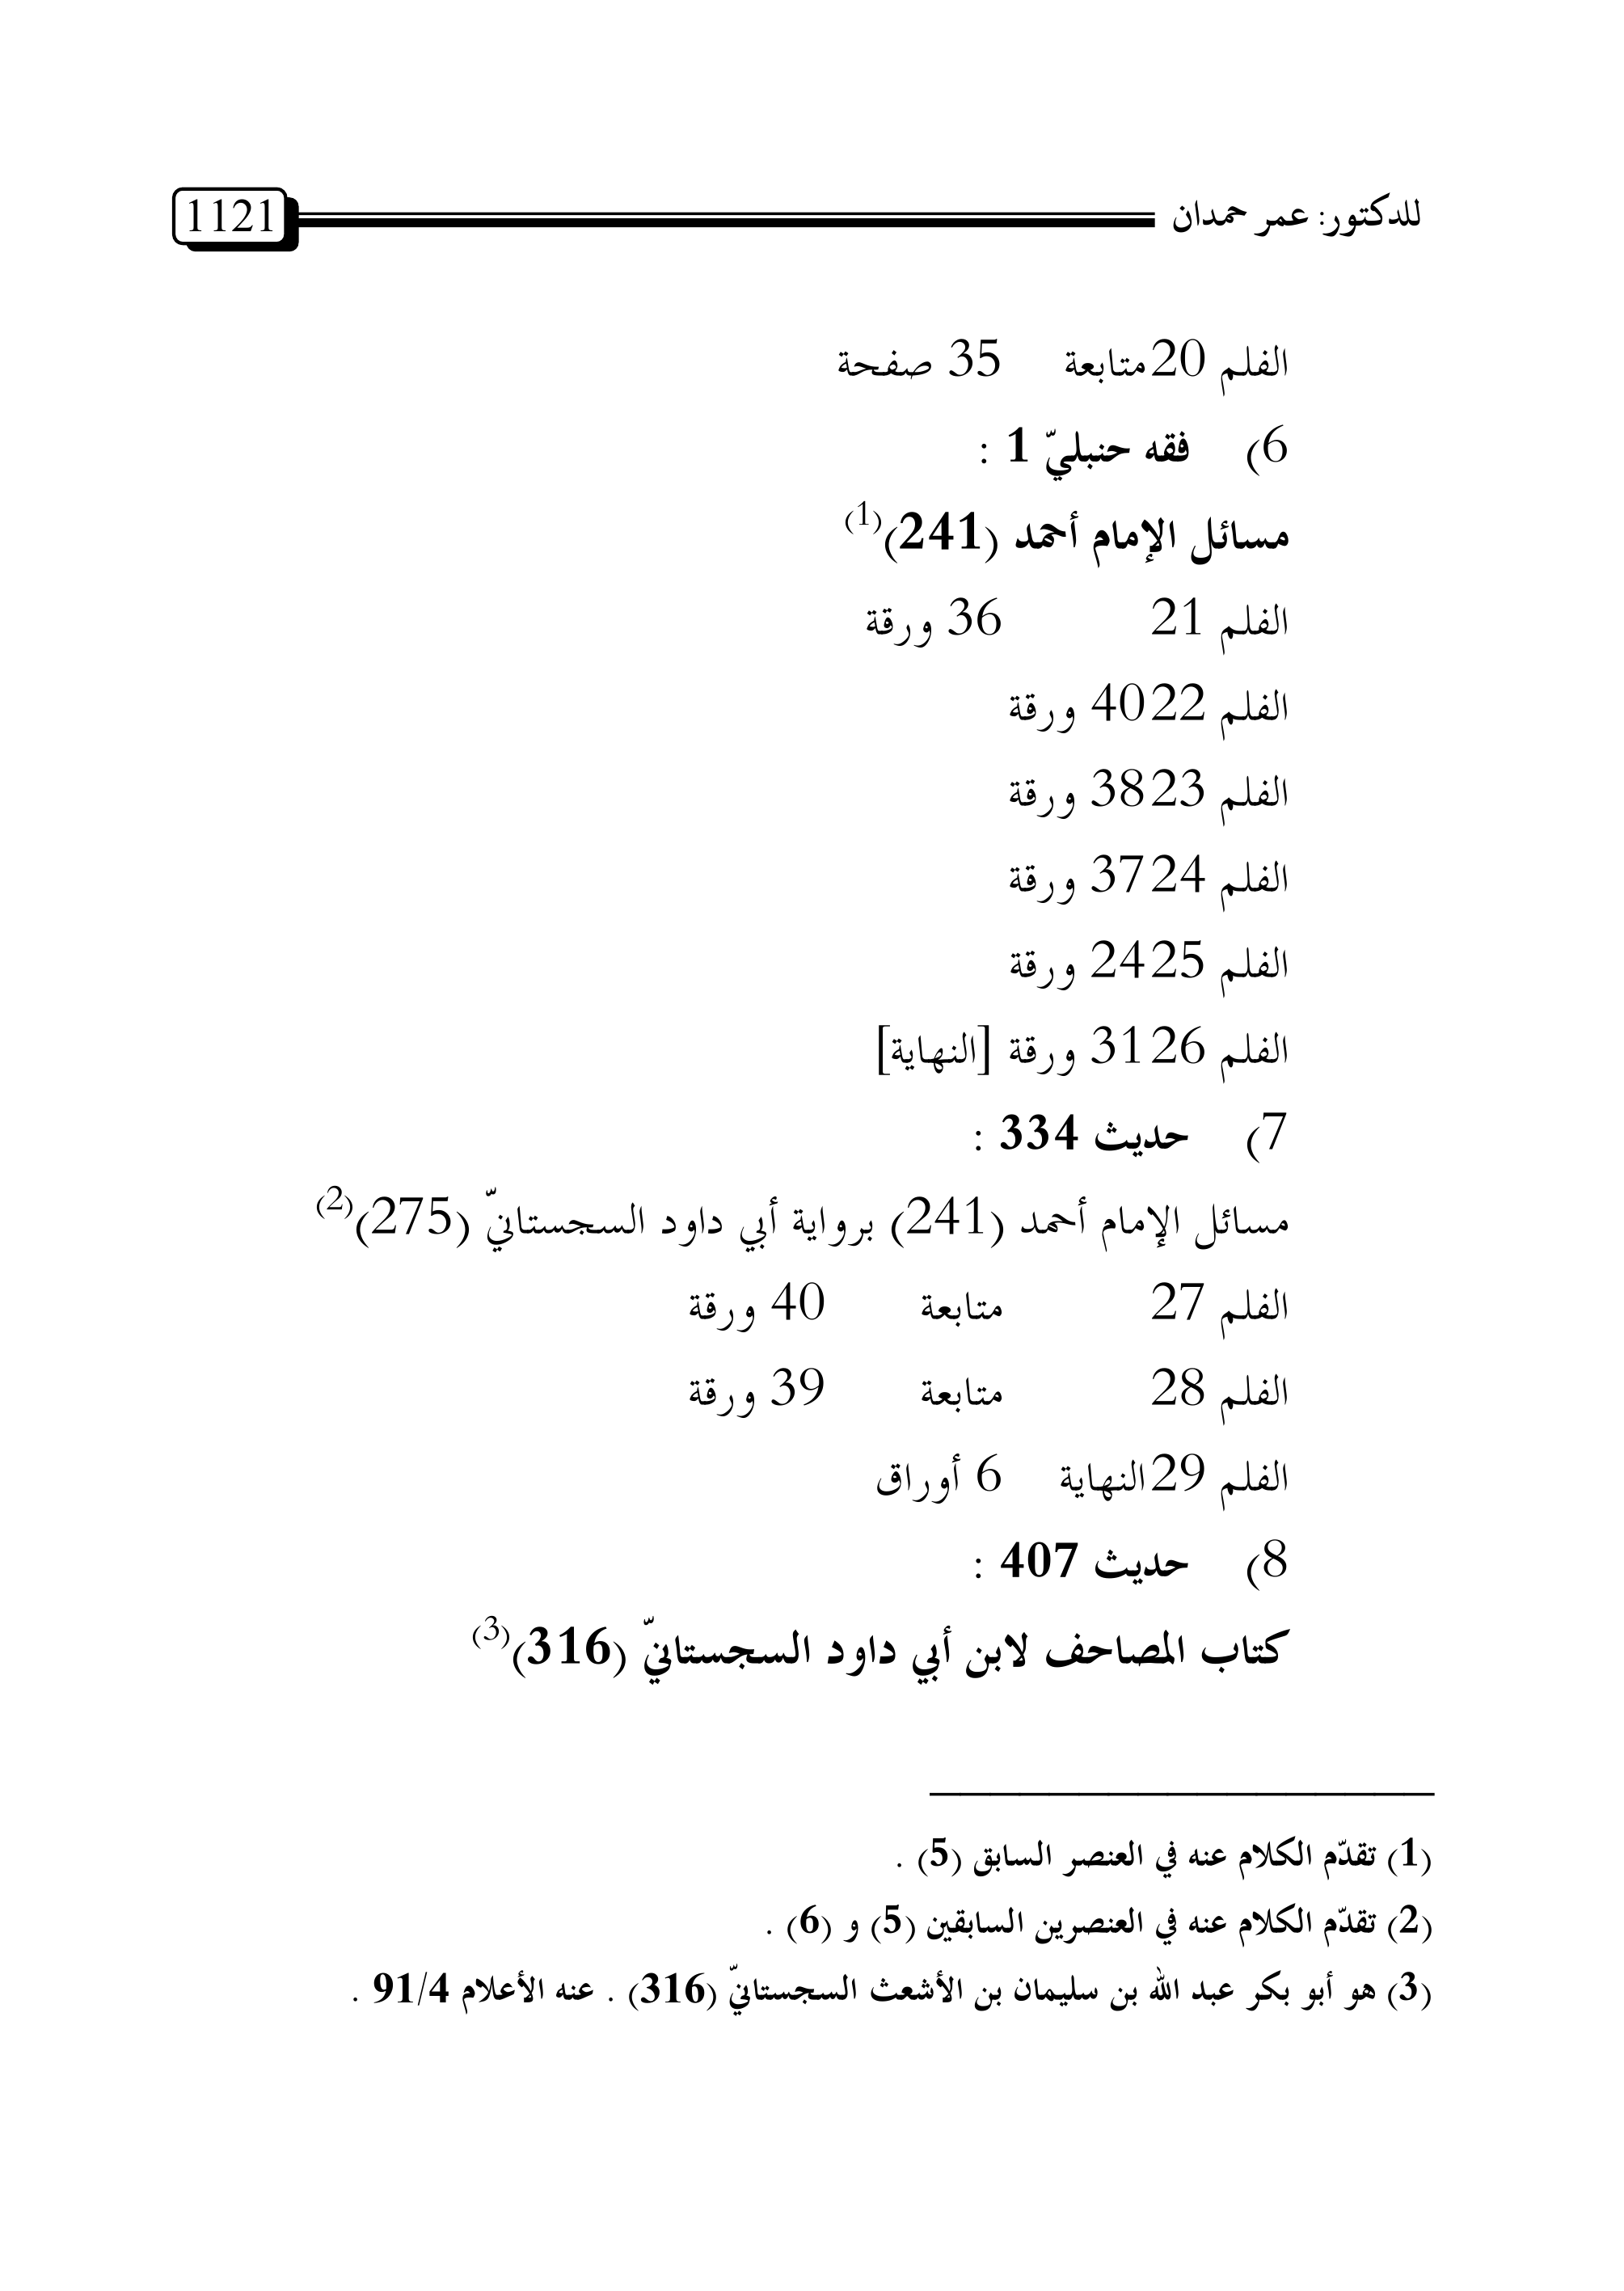 للدكتور: عمر حمدان 1121
الفلم 20 متابعة 35 صفحة
6) فقه حنبليّ 1 :
مسائل الإمام أحمد (241)(1)
الفلم 21 36 ورقة
الفلم 22 40 ورقة
الفلم 23 38 ورقة
الفلم 24 37 ورقة
الفلم 25 24 ورقة
الفلم 26 31 ورقة [النهاية]
7) حديث 334 :
مسائل الإمام أحمد (241) برواية أبي داود السجستانيّ (275)(2)
الفلم 27 متابعة 40 ورقة
الفلم 28 متابعة 39 ورقة
الفلم 29 النهاية 6 أوراق
8) حديث 407 :
كتاب المصاحف لابن أبي داود السجستانيّ (316)(3)
(1) تقدّم الكلام عنه في العنصر السابق (5) .
(2) تقدّم الكلام عنه في العنصرين السابقين (5) و (6) .
(3) هو أبو بكر عبد الله بن سليمان بن الأشعث السجستانيّ (316) . عنه الأعلام 91/4 .